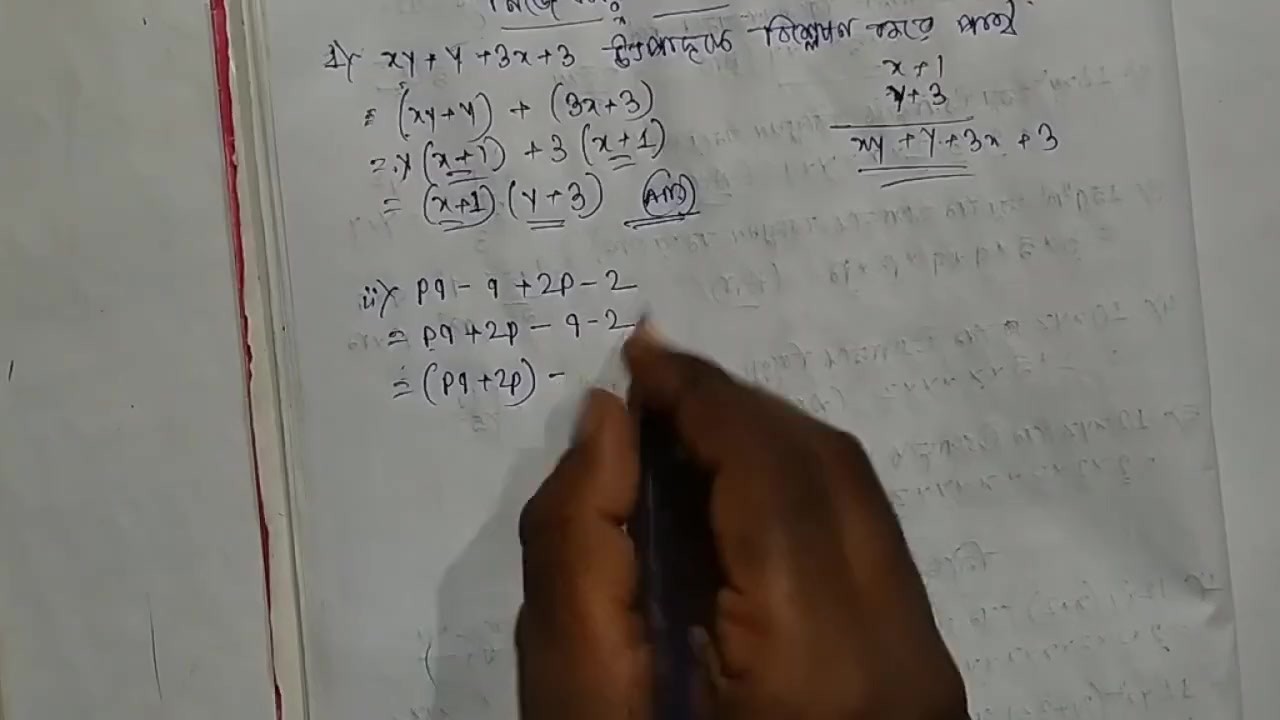 1) xy + y + 3x + 3 উৎপাদকে বিশ্লেষণ করতে পারি
= (xy + y) + (3x + 3)
= y (x + 1) + 3 (x + 1)
= (x + 1) (y + 3) (Ans)
x + 1
y + 3
xy + y + 3x + 3
ii) pq - q + 2p - 2
= pq + 2p - q - 2
= (pq + 2p) -